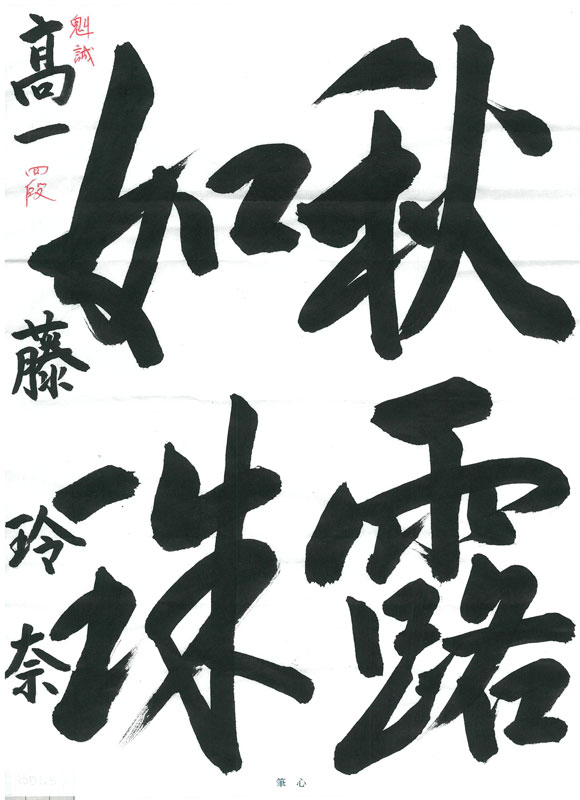 秋露
如珠
高一 藤 玲奈
魁誠
四段
筆心